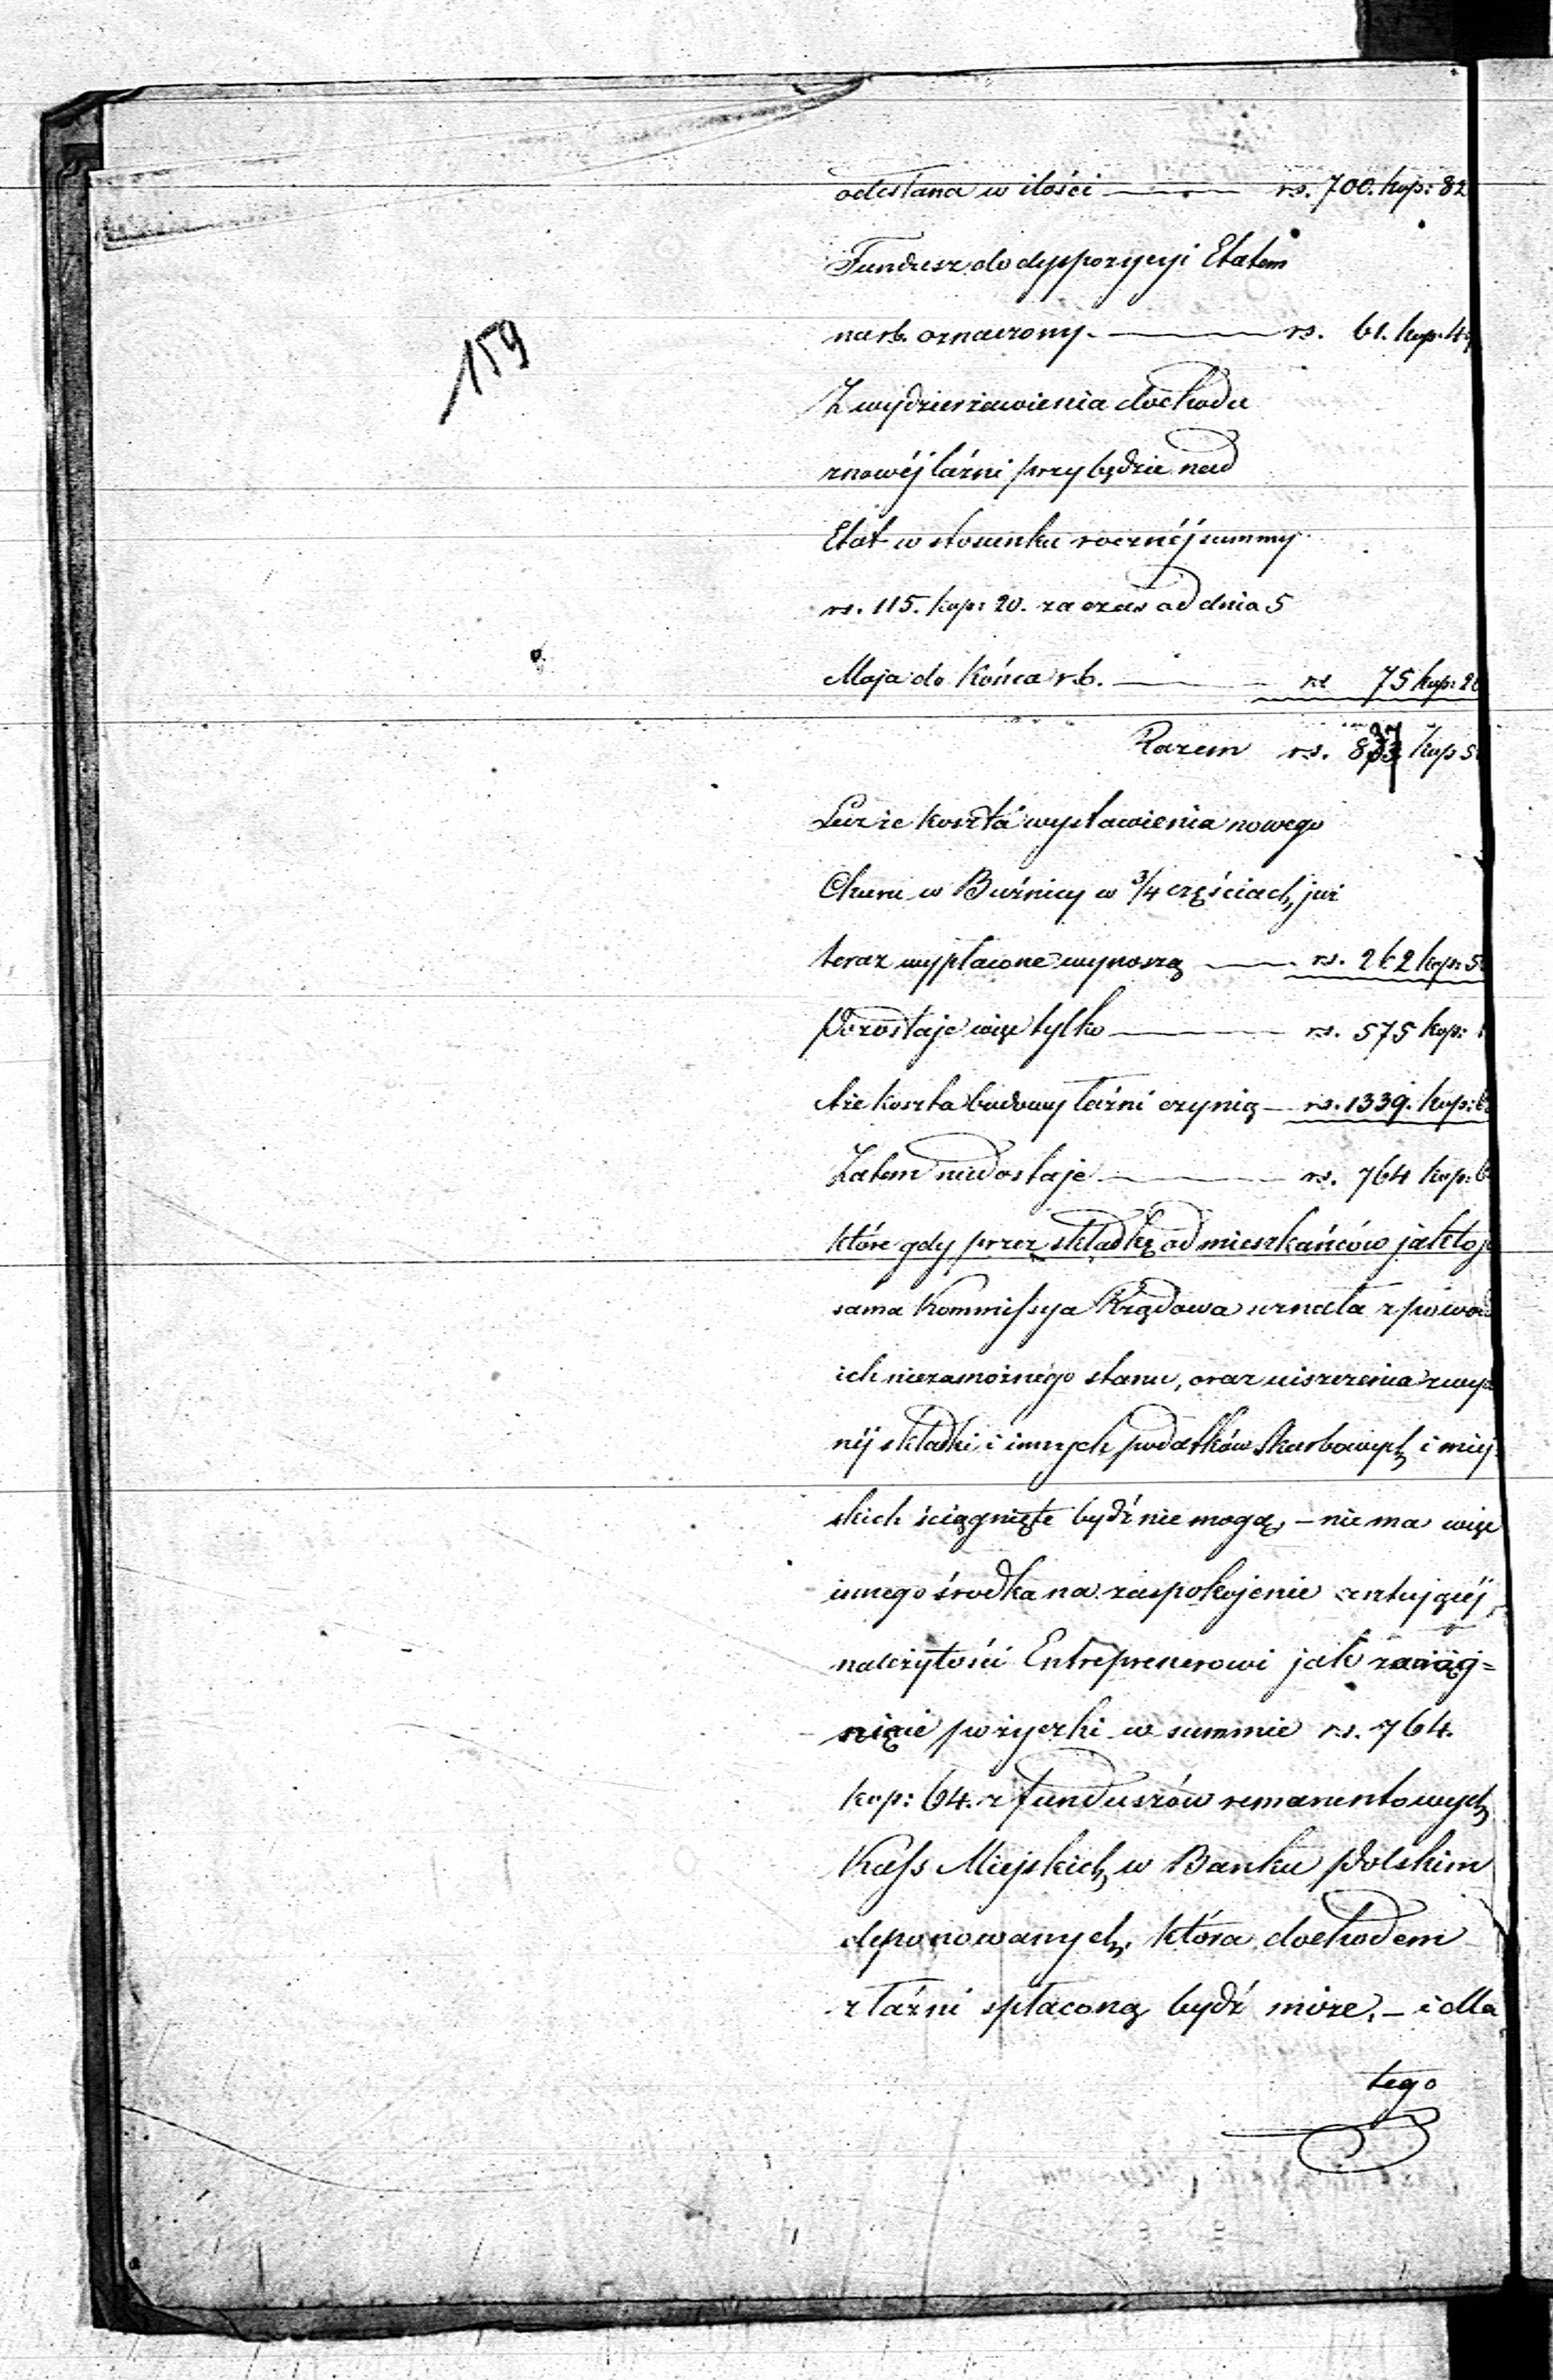 159
odesłana w ilości — rs. 700. kop: 82
Fundusz do dyspozycyi Etatem
na rb. oznaczony. — rs. 61. kop. 4
Z wydzierżawienia dochodu
z nowéj łaźni przybędzie nad
Etat w stosunku rocznéj summy
rs. 115. kop: 20. za czas od dnia 5
Maja do Końca r.b. — rs 75 kop: 20
Razem rs. 837 kop 5
Lecz że koszta wystawienia nowego
Churu w Bużnicy w 3/4 częściach już
teraz wypłacone wynoszą — rs. 262 kop: 5
Pozostaje więc tylko — rs. 575 kop:
A że koszta budowy łaźni czynią — rs. 1339. kop: 6
Zatem niedostaje — rs. 764 kop: 6
które gdy przez składkę od mieszkańców jak to j
sama Kommissya Rządowa uznała z powod
ich niezamożnego stanu, oraz uiszczenia zwycz
néj składki i innych podatków Skarbowych i miej=
skich ściągnięte bydź nie mogą, – nie ma więc
innego środka na zaspokojenie
należytości Entreprenerowi jak zaciąg=
nięcie pożyczki w summie rs. 764.
kop: 64. z funduszów remanentowych
Kass Miejskich w Banku Polskim
deponowanych, która dochodem
z łaźni spłaconą bydź może, – i dla
tego